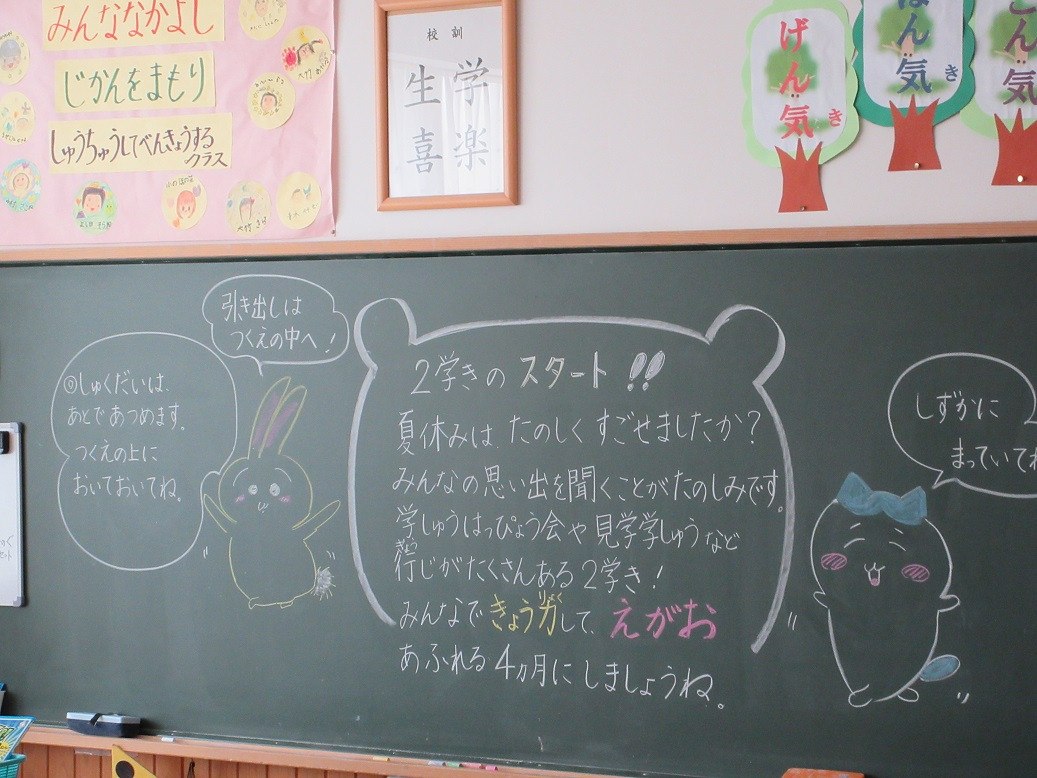 みんななかよし
じかんをまもり
しゅうちゅうしてべんきょうする
クラス
校訓
学楽
生喜
げん気
き
ん気
き
ん気
引き出しは
つくえの中へ!
◎しゅくだいは、
あとであつめます。
つくえの上に
おいておいてね。
2学きのスタート!!
夏休みは、たのしくすごせましたか?
みんなの思い出を聞くことがたのしみです。
学しゅうはっぴょう会や見学学しゅうなど
行じがたくさんある2学き!
ぎょう
みんなできょう力して、えがお
りょく
あふれる4ヵ月にしましょうね。
しずかに
まっていてね